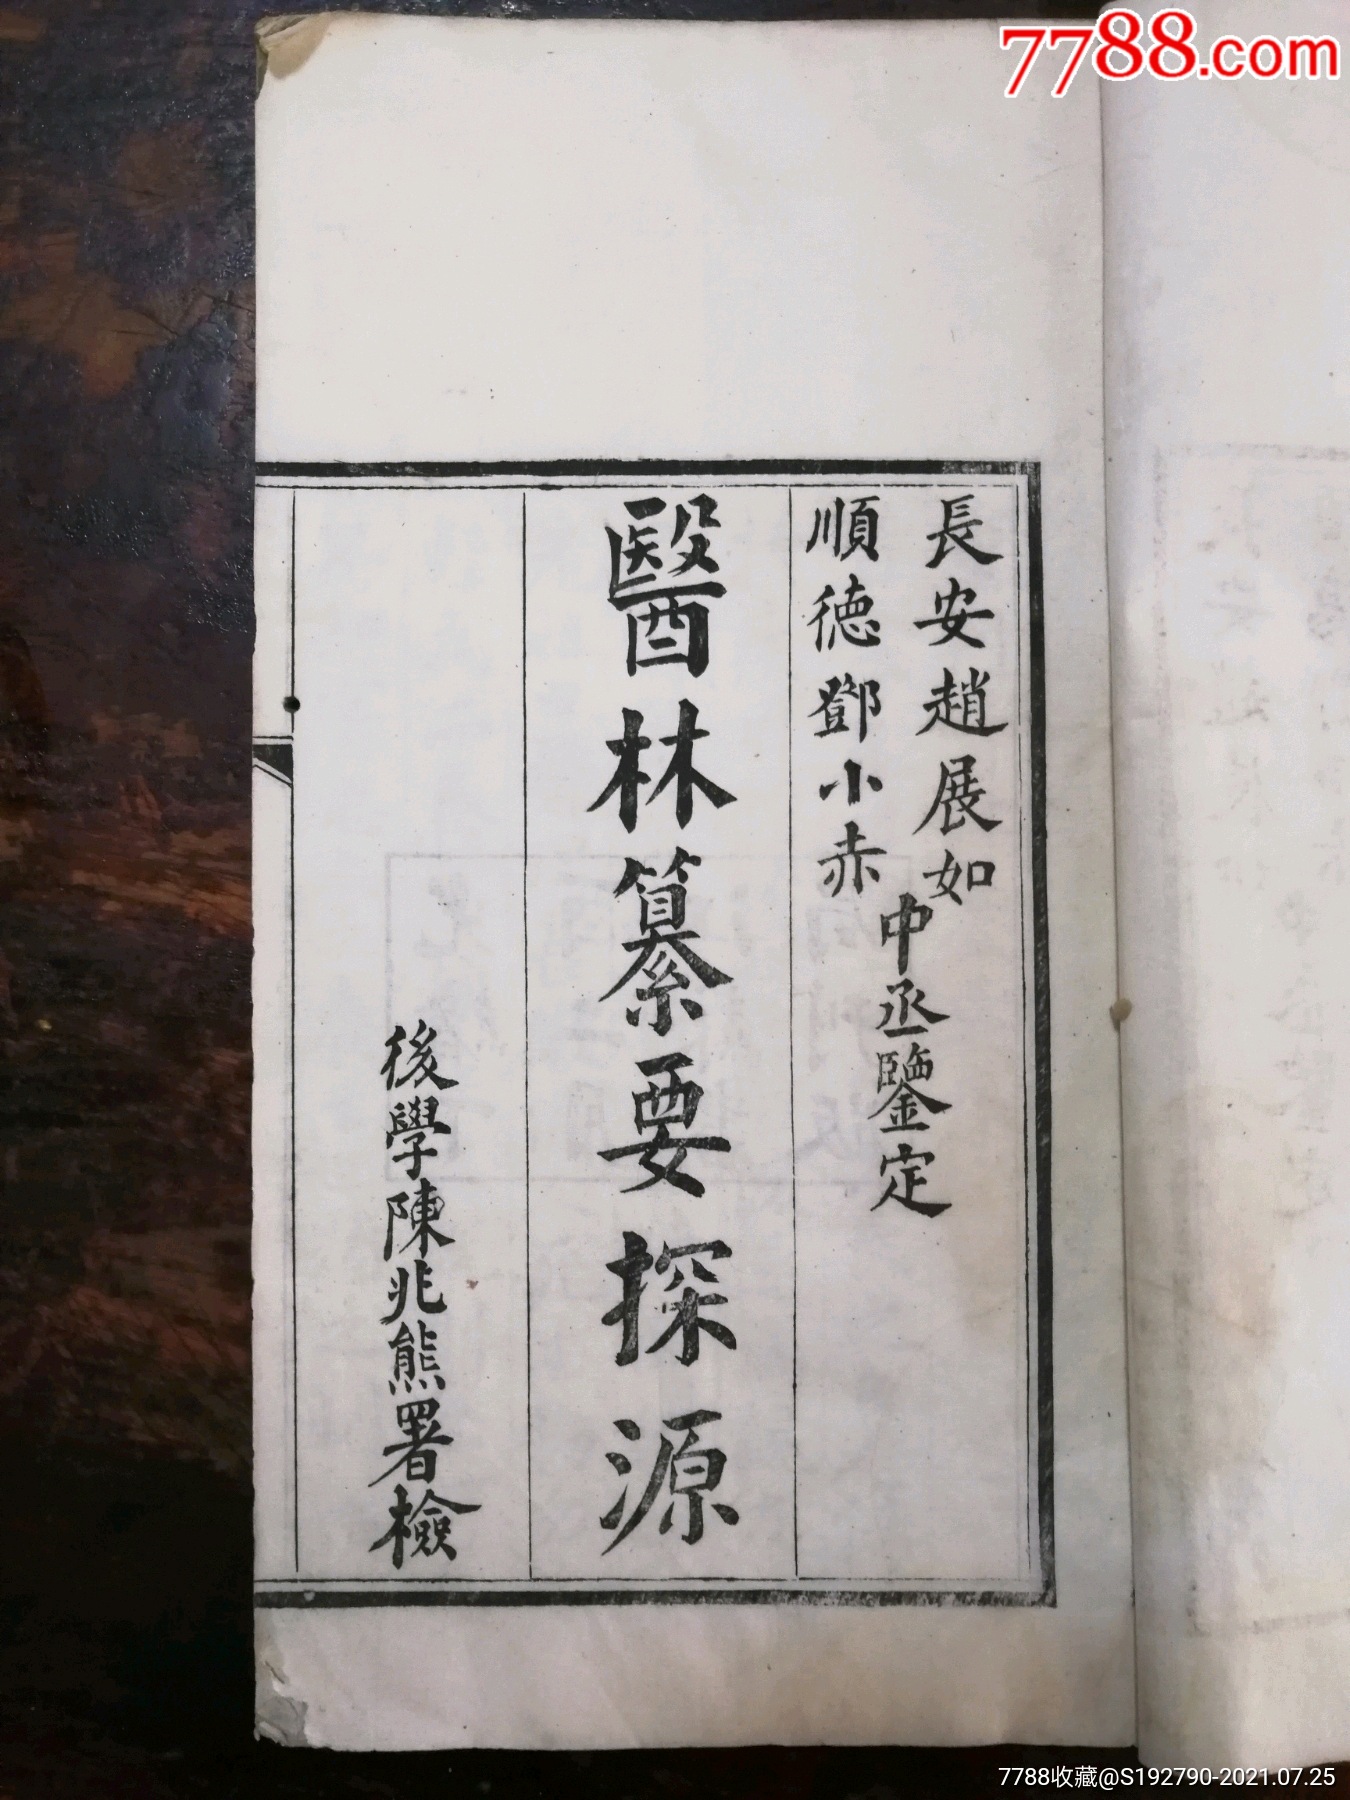 7788.com
長安趙展如
順德鄧小赤
中丞鑒定
醫林纂要探源
後學陳兆熊署檢
7788收藏@S192790-2021.07.25